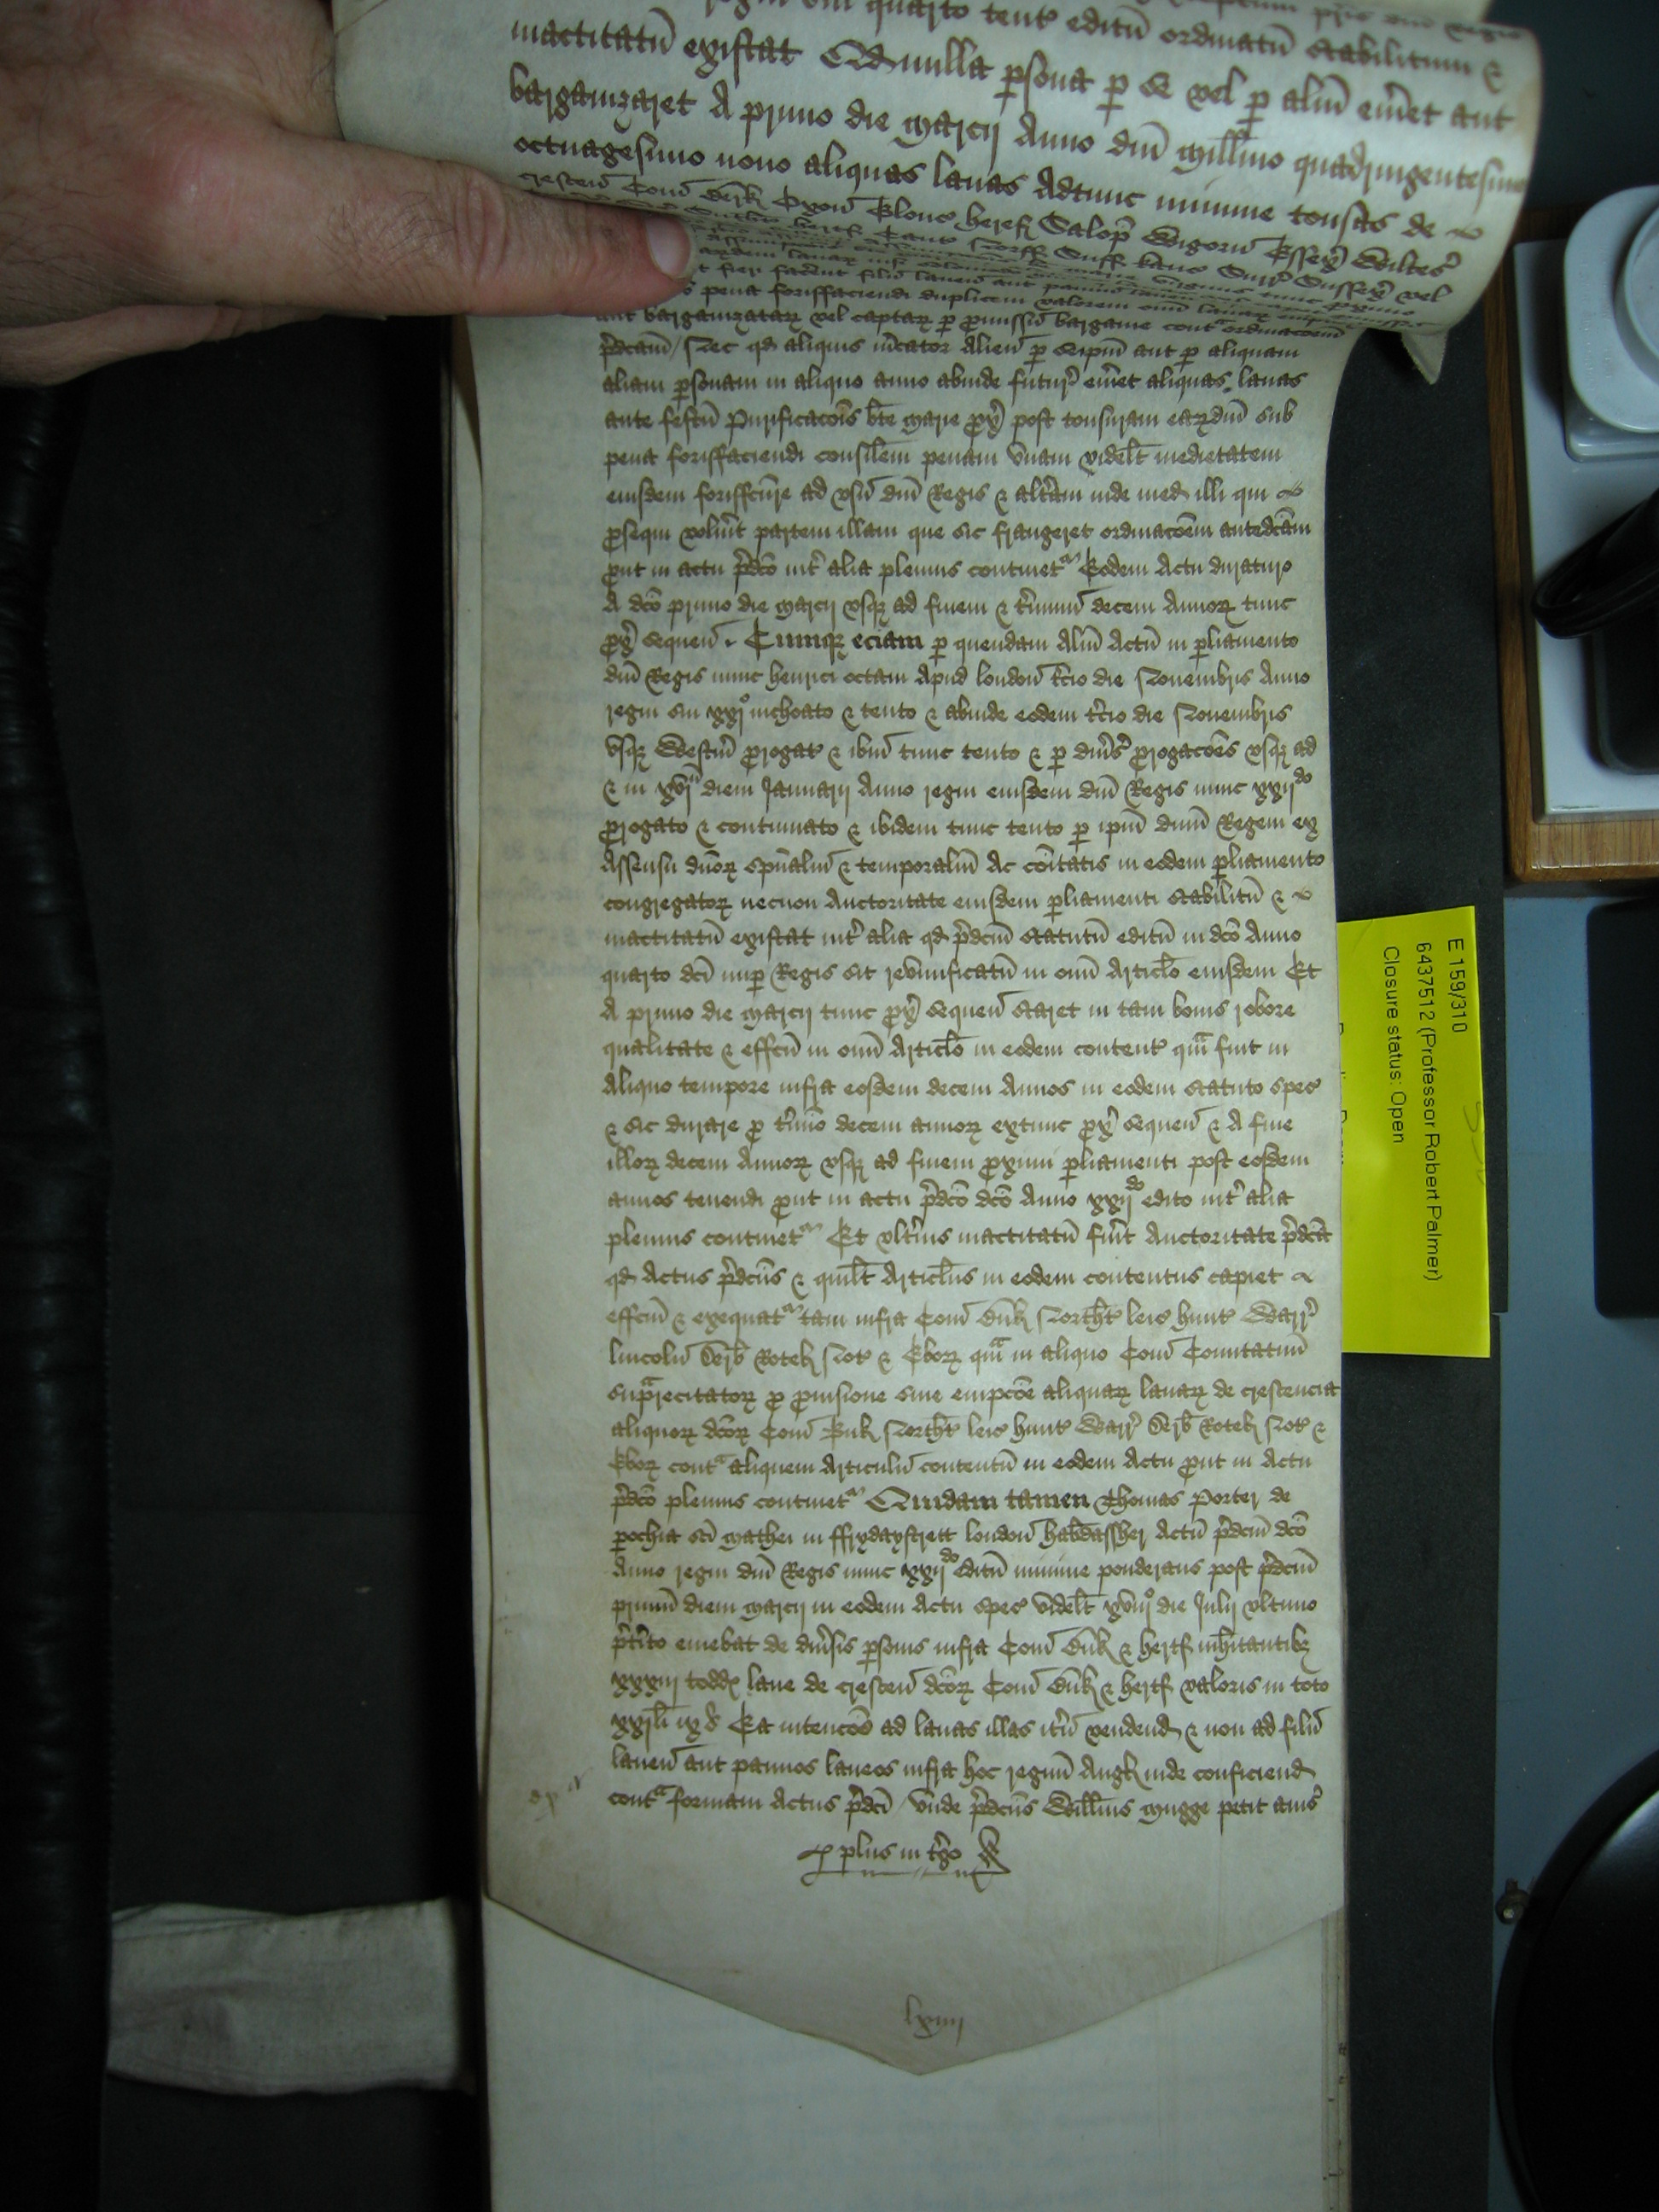 regni sui quarto tent' editu ordinatu stabilitum &
inactitatu existat Qd nulla psona p se vel p aliu emet aut
barganizaret A primo die Marcij Anno dni millimo quadringentesimo
octuagesimo nono aliquas lanas Adtunc minime tonsas de
crescen Com Berk Oxon Glouc heref Salop Wigorn Essex Wiltes
pena forisfaciendi duplicem valorem
aut barganizatar vel captar p promissu barganie cont ordinacoem
pdcam / Nec qd aliquis mcator Alien p seipm aut p aliquam
aliam psonam in aliquo anno abinde futur' emet aliquas lanas
ante festu Purificacois bte Marie prox' post tonsuram eardm sub
pena forisfaciendi consilem penam vnam videlt medietatem
eiusdem forisfcure ad vsu dni Regis & altam inde med illi qui
psequi voluit partem illam que sic frangeret ordinacoem antedcam
put in actu pdco int' alia plenius continet' Eodem Actu duraturo
A dco primo die Marcij vsq ad finem & tminu decem Annor tunc
prox' sequen . Cumq eciam p quendam Aliu Actu in pliamento
dni Regis nunc henrici octaui Apud london tcio die Nouembris Anno
regni sui xxjo inchoato & tento & abinde eodem tcio die Nouembris
vsq Westm progat' & ibm tunc tento & p diuss' progacoes vsq ad
& in xvj diem Januarij Anno regni eiusdem dni Regis nunc xxijdo
progato & continuato & ibidem tunc tento p ipm dnm Regem ex
Assensu dnor spualiu & temporaliu Ac coitatis in eodem pliamento
congregator necnon Auctoritate eiusdem pliamenti stabilitu &
inactitatu existat int' alia qd pdcm statutu editu in dco Anno
quarto dci nup Regis sit reviuificatu in omi Articlo eiusdem Et
A primo die Marcij tunc prox' sequen staret in tam bonis robore
qualitate & effcu in omi Articlo in eodem content' qm fuit in
Aliquo tempore infra eosdem decem Annos in eodem statuto spec'
& sic durare p tmio decem annor extunc prox' sequen & A fine
illor decem Annor vsq ad finem proximi pliamenti post eosdem
annos tenendi put in actu pdco dco Anno xxijdo edito int' alia
plenius continet' Et vlt'ius inactitatu fuit Auctoritate pdca
qd Actus pdcus & quilt Articlus in eodem contentus capiet
effcm & exequat' tam infra Com Buk Northt' leic' hunt' Warr'
lincoln Derb Rotel Not' & Ebor qm in aliquo Com Comitatuu
suprarecitator p prouisione siue empcoe aliquar lanar de crescencia
aliquor dcor Com Buk Northt' leic' hunt' Warr' Derb Rotel Not' &
Ebor cont' aliquem Articulu contentu in eodem Actu put in Actu
pdco plenius continet' Quidam tamen Thomas Porter de
pochia sci Mathei in ffrydaystrett london habdassher Actu pdcm dco
Anno regni dni Regis nunc xxijdo editu minime ponderans post pdcm
primu diem Marcij in eodem Actu spec' videlt xviijo die Julij vltimo
ptito emebat de diusis psonis infra Com Buk & hertf inhitantib
xxxiij todd lane de crescen dcor Com Buk & hertf valoris in toto
xxjli ixs Ea intencoe ad lanas illas itru vendend & non ad filu
laneu aut pannos laneos infra hoc regnu Angl inde conficiend
cont' formam Actus pdci / vnde pdcus Willms Mugge petit auis'
plus in tgo
lxiiij
E 159/310
6437512 (Professor Robert Palmer)
Closure status: Open